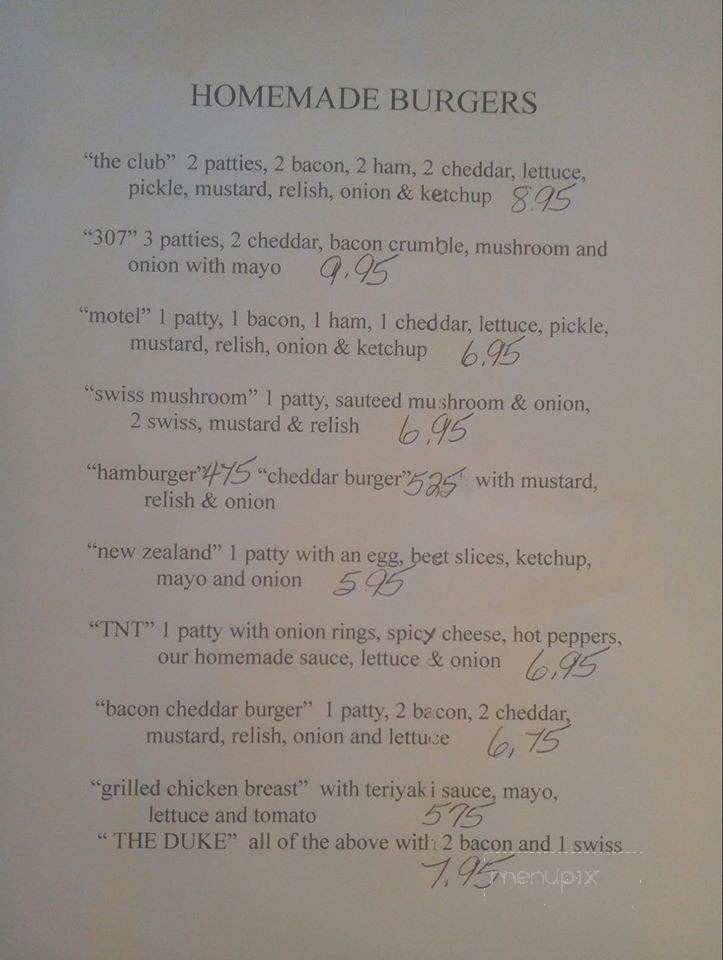 HOMEMADE BURGERS
“the club” 2 patties, 2 bacon, 2 ham, 2 cheddar, lettuce,
pickle, mustard, relish, onion & ketchup 8.95
“307” 3 patties, 2 cheddar, bacon crumble, mushroom and
onion with mayo 9.95
“motel” 1 patty, 1 bacon, 1 ham, 1 cheddar, lettuce, pickle,
mustard, relish, onion & ketchup 6.95
“swiss mushroom” 1 patty, sauteed mushroom & onion,
2 swiss, mustard & relish 6.95
“hamburger” 475 “cheddar burger” 525 with mustard,
relish & onion
“new zealand” 1 patty with an egg, beet slices, ketchup,
mayo and onion 5.95
“TNT” 1 patty with onion rings, spicy cheese, hot peppers,
our homemade sauce, lettuce & onion 6.95
“bacon cheddar burger” 1 patty, 2 bacon, 2 cheddar,
mustard, relish, onion and lettuce 6,75
“grilled chicken breast” with teriyaki sauce, mayo,
lettuce and tomato 575
“ THE DUKE” all of the above with 2 bacon and 1 swiss
7.95
menupix